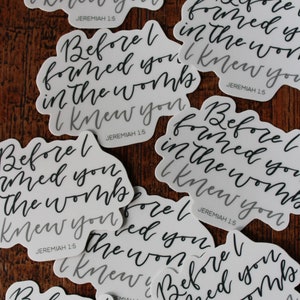 JEREMIAH 1:5
Before I
formed you
in the womb
I knew you
JEREMIAH 1:5
formed you
in the womb
I knew you
JEREMIAH 1:5
Before I
formed you
in the womb
I knew you
JEREMIAH 1:5
Before I
formed you
the womb
I knew you
JEREMIAH 1:5
Before I
formed you
in the womb
I knew you
Before I
formed you
in the womb